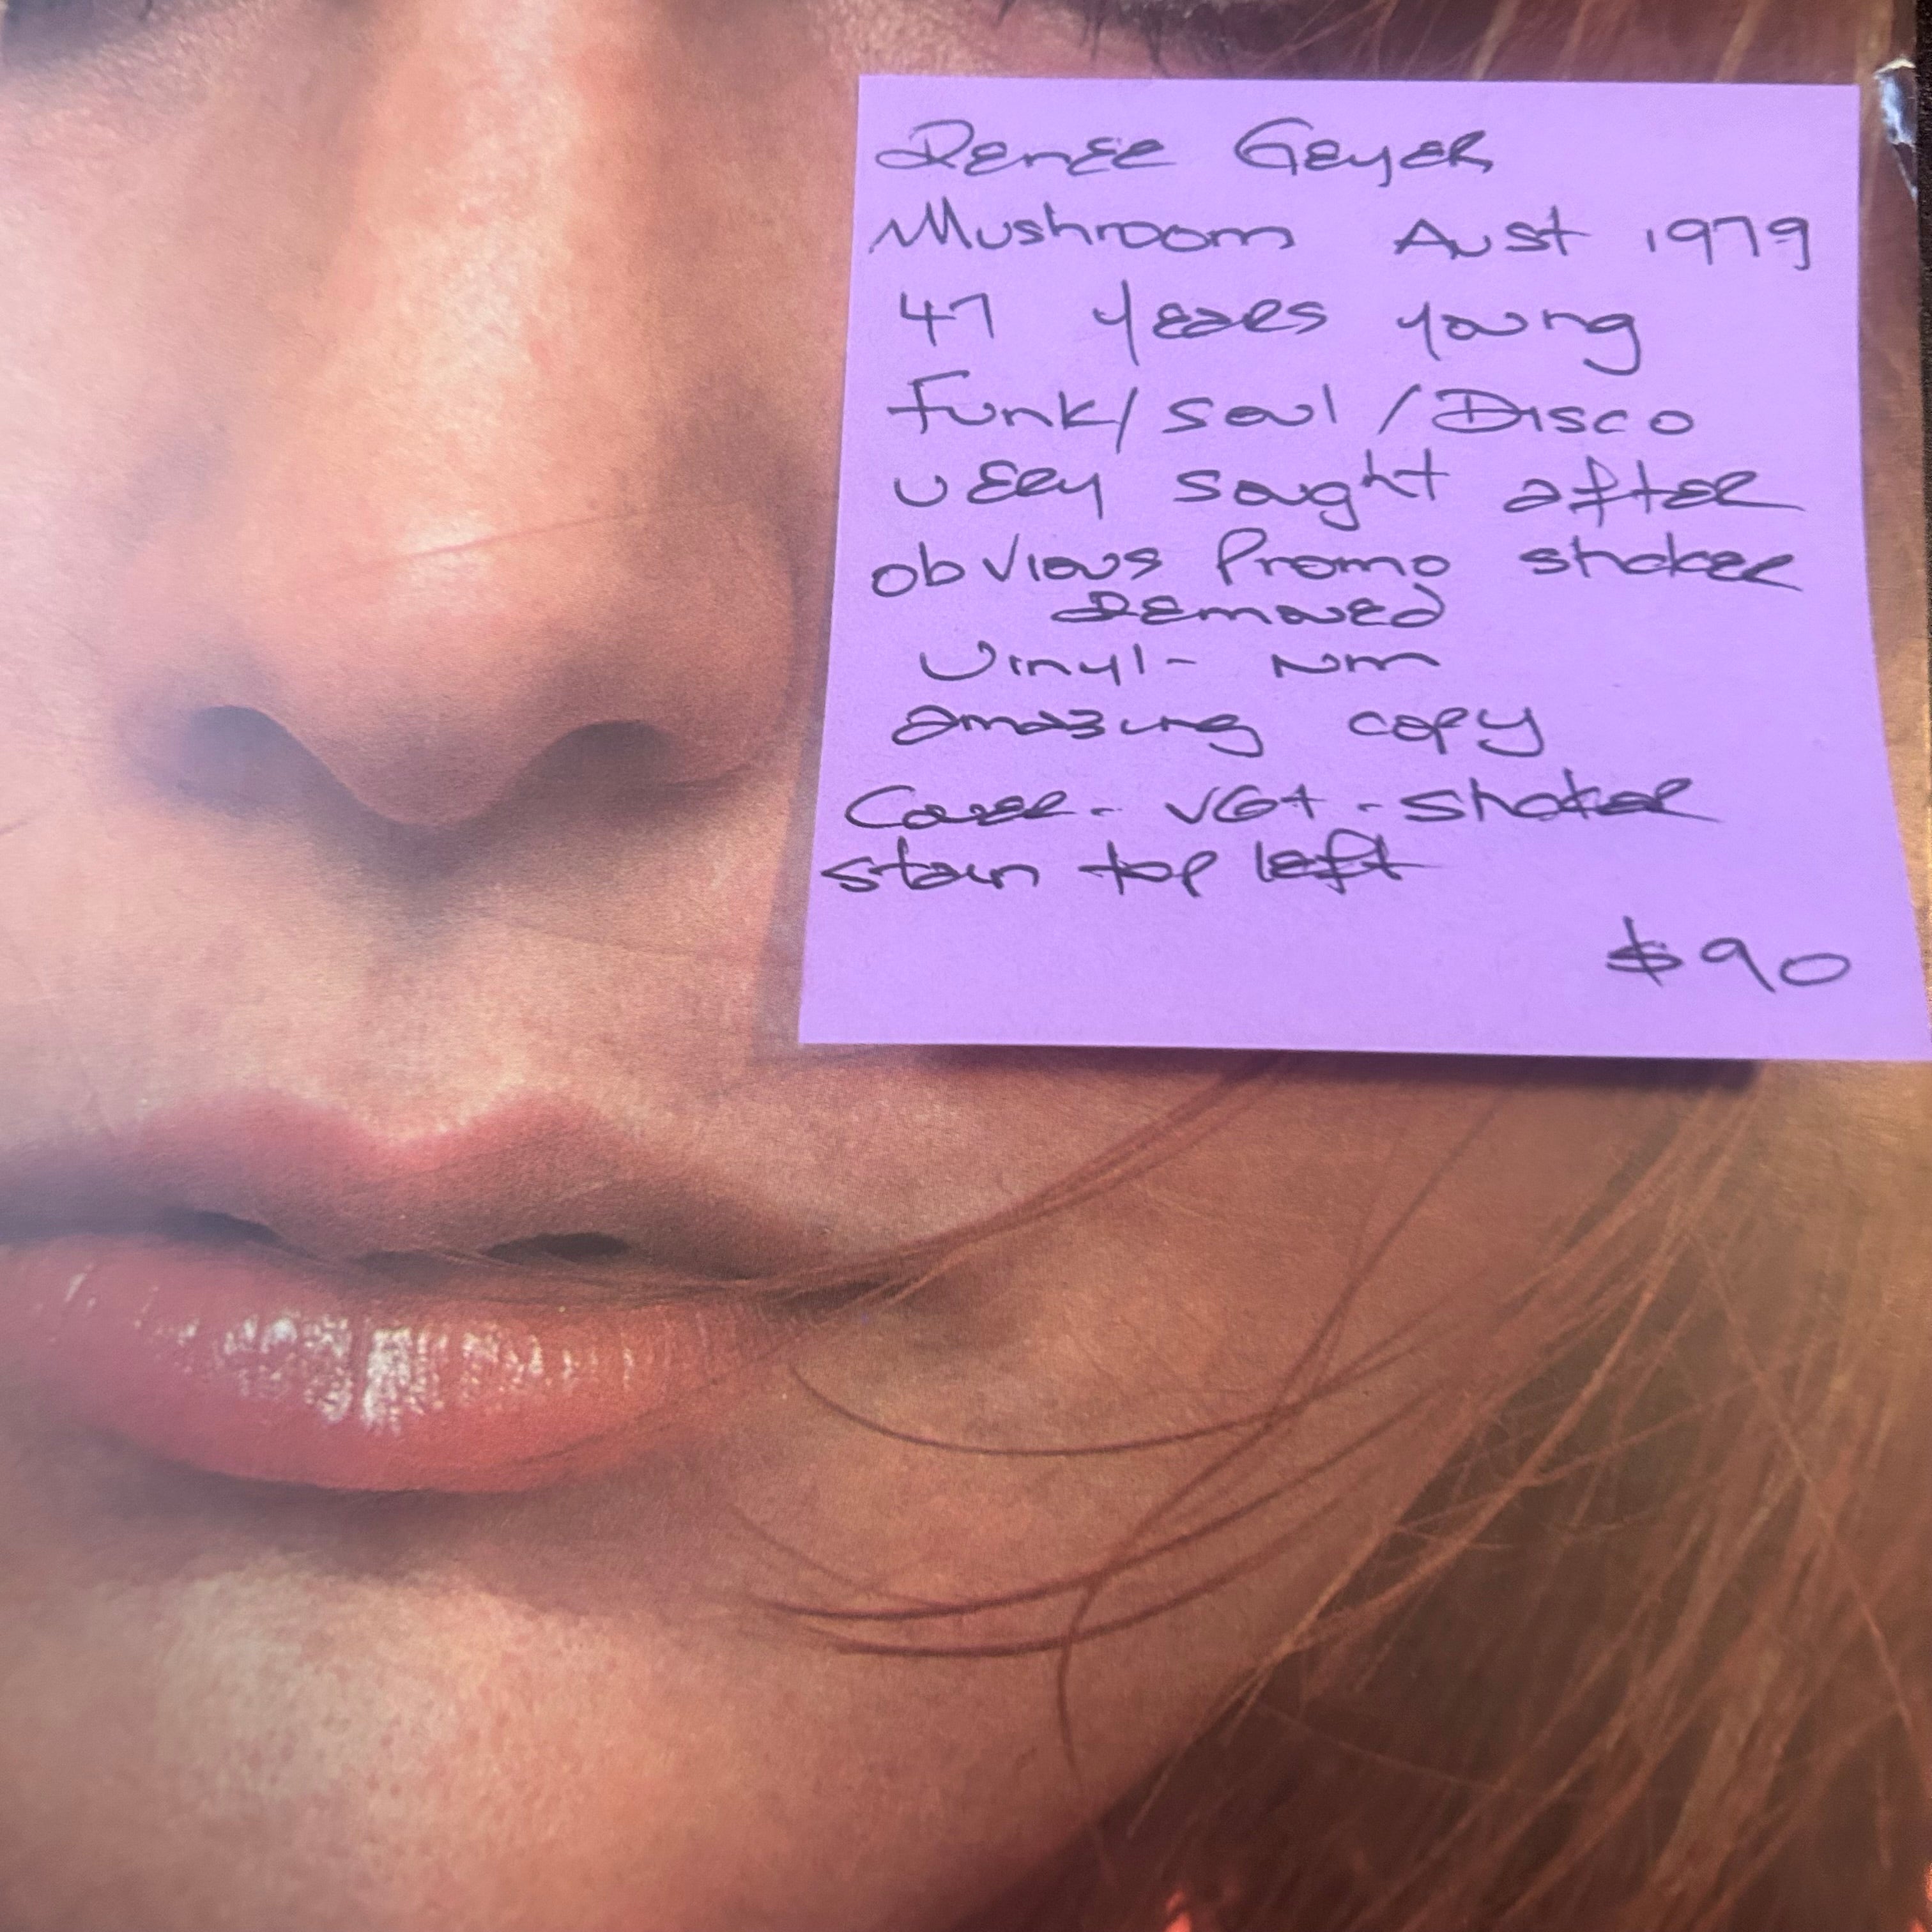 Renee Geyer
Mushroom Aust 1979
47 years young
Funk/ soul / Disco
very sought after
obvious Promo sticker
removed
Vinyl - NM
amazing copy
Cover - VG+ - sticker
stain top left
$90